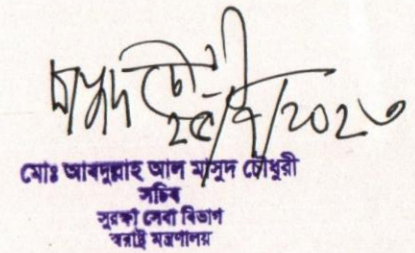 মাসুদ চৌ
২৫/৭/২০২৩
মোঃ আবদুল্লাহ আল মাসুদ চৌধুরী
সচিব
সুরক্ষা সেবা বিভাগ
স্বরাষ্ট্র মন্ত্রণালয়